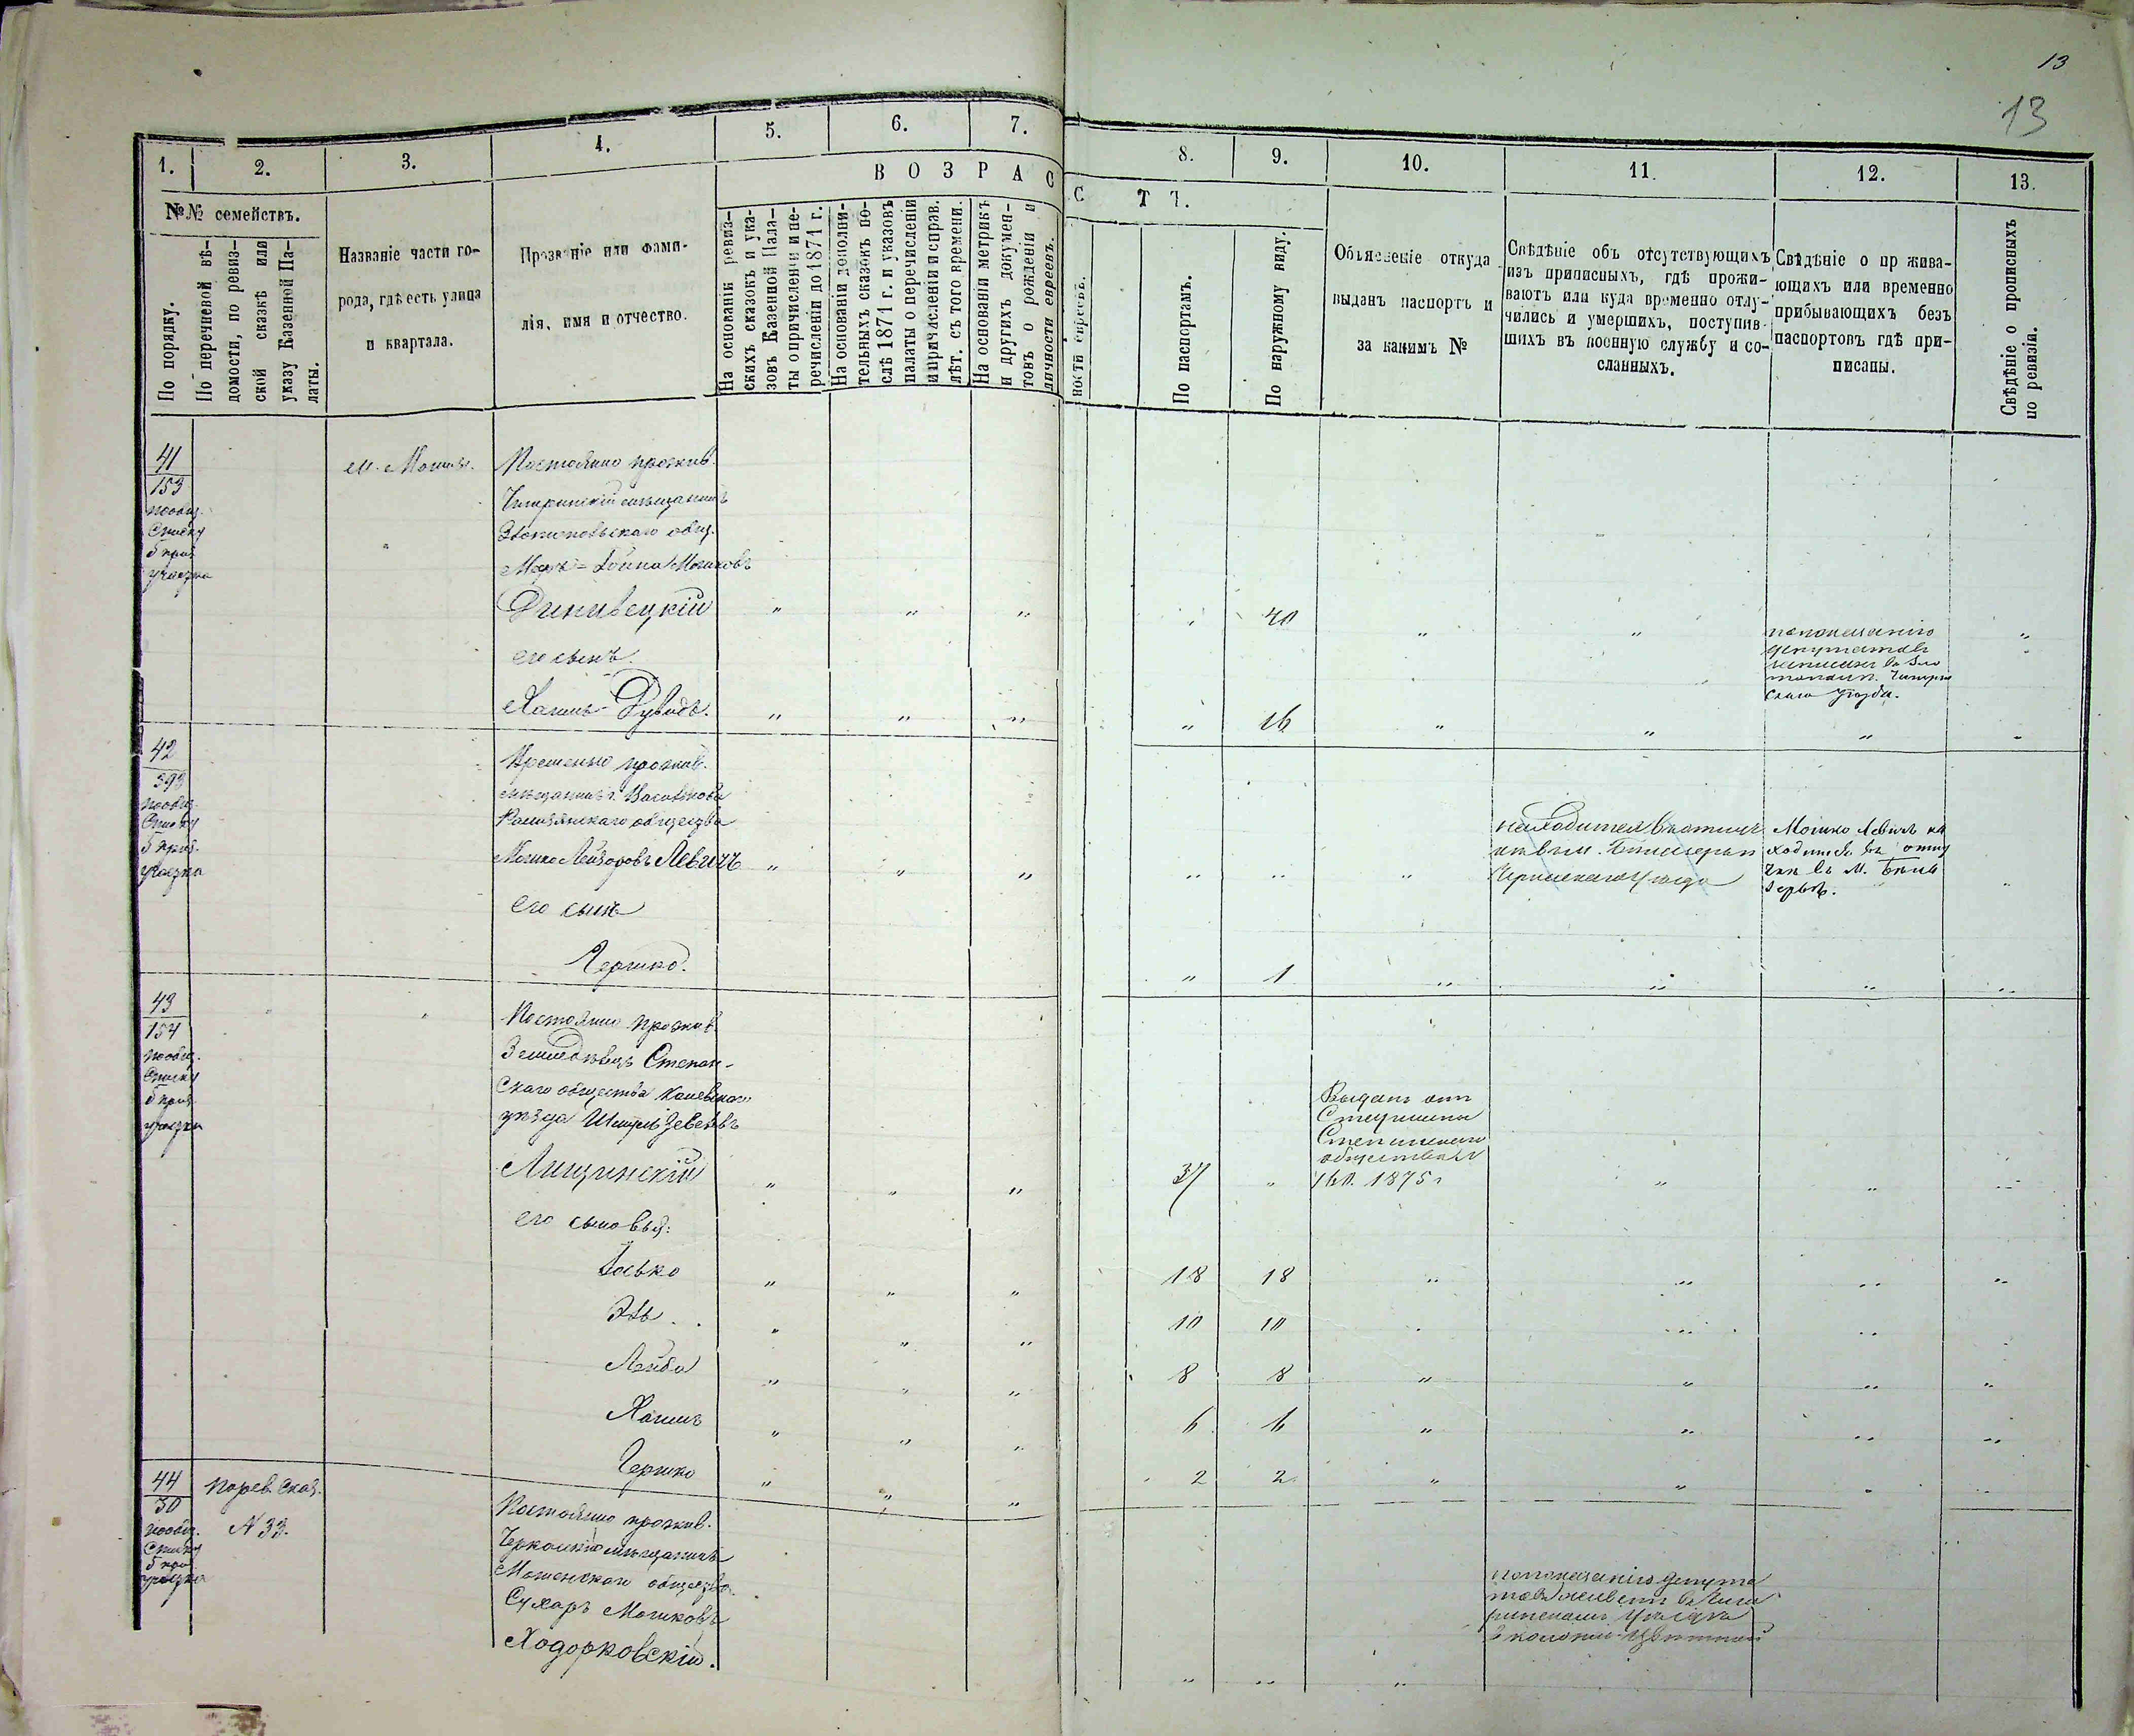 13
13
1.
2.
3.
4.
5.
6.
7.
8.
9.
10.
11.
12.
13.
В О З Р А С
С Т Ъ.
№№ семействъ.
По порядку.
По перечневой вѣ-
домости, по ревиз-
ской сказкѣ или
указу Казенной Па-
латы.
Названіе части го-
рода, гдѣ есть улица
и квартала.
Прозваніе или фами-
лія, имя и отчество.
На основаніи ревиз-
скихъ сказокъ и ука-
зовъ Казенной Пала-
ты о причисленіи и пе-
речисленіи до 1871 г.
На основаніи дополни-
тельныхъ сказокъ по-
слѣ 1871 г. и указовъ
палаты о перечисленіи
и причисленіи и справ.
лѣт. съ того времени.
На основаніи метрикъ
и другихъ докумен-
товъ о рожденіи и
личности евреевъ.
ности евреевъ.
По паспортамъ.
По наружному виду.
Объясненіе откуда
выданъ паспортъ и
за какимъ №
Свѣдѣніе объ отсутствующихъ
изъ приписныхъ, гдѣ прожи-
ваютъ или куда временно отлу-
чились и умершихъ, поступив-
шихъ въ военную службу и со-
сланныхъ.
Свѣдѣніе о пр жива-
ющихъ или временно
прибывающихъ безъ
паспортовъ гдѣ при-
писаны.
Свѣдѣніе о прописныхъ
по ревизіи.
41
153
пообщ.
Списку
5 приз.
участка
м. Мошны.
Постоянно прожив.
Чигиринскій мѣщанинъ
общ.
Мошковъ
" " " 40 " " "
его сынъ.
Хаимъ-Дувидъ.
" " " " 16 " " " "
по показанію
депутатовъ
уѣзда.
42
393
пообщ.
Списку
5 приз.
участка
Временно прожив.
мѣщанинъ г. Василькова
общества
Мошко Лейзоровъ Левичъ
" " " " " "
находится въ
уѣзда
Мошко Левичъ на
ходится въ отлу
чкѣ въ м. Бѣло
зерьѣ.
его сынъ
Гершко.
" 1 " " " "
43
154
пообщ.
Списку
5 приз.
участка
Постоянно прожив.
Земледѣлецъ Степан-
скаго общества Каневскаго
уѣзда
Лищинскій
" " " 37 "
Выданъ отъ
Старшины
Степанскаго
общества
1875 г
" " "
его сыновья:
Іосько
" " " 18 18 " " " "
" " " 10 10
Лейба
" " " 8 8 " " " "
Хаимъ
" " " 6 6 " " " "
Гершко
" " " 2 2 " "
44
30
пообщ.
Списку
5 приз.
участка
порев. сказ.
№ 33.
Постоянно прожив.
Черкаскій мѣщанинъ
Мошенскаго общества
Сухаръ Мошковъ
Ходорковскій.
" " "
по показанію депута
товъ живетъ въ Чиги
ринскомъ уѣздѣ